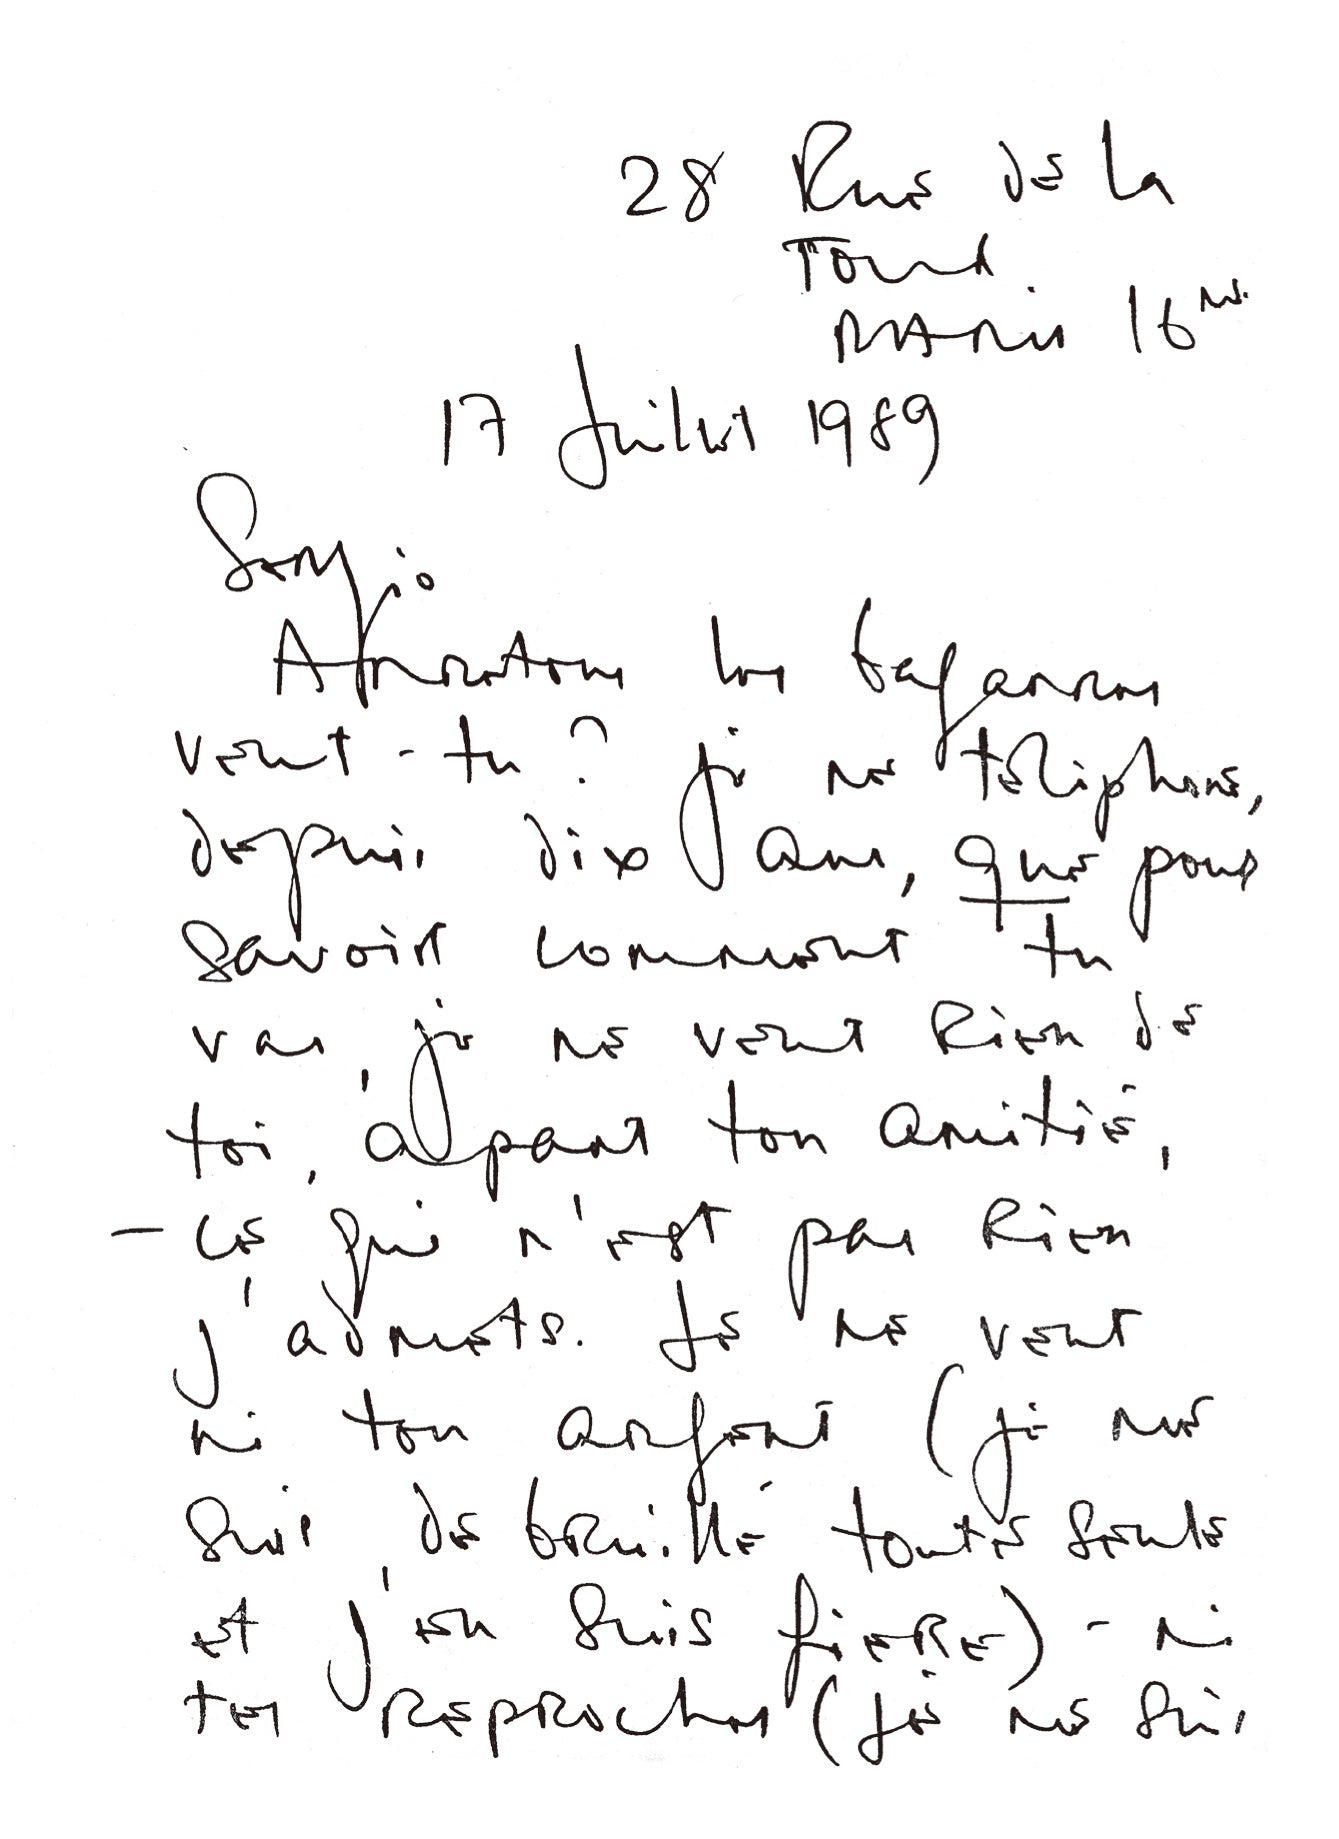 28 Rue de la
Tour
PARis 16me.
17 Juillet 1989
Sergio
Arretons les bagarres
veut-tu? je ne téléphone,
depuis dix ans, que pour
savoir comment tu
vas, je ne veut Rien de
toi, àpart ton amitié,
- ce qui n'est pas Rien
j'admets. Je ne veut
ni ton argent (je me
suis débrouillé toute seule
et j'en suis fiERE) - ni
tes REPROches (je me suis